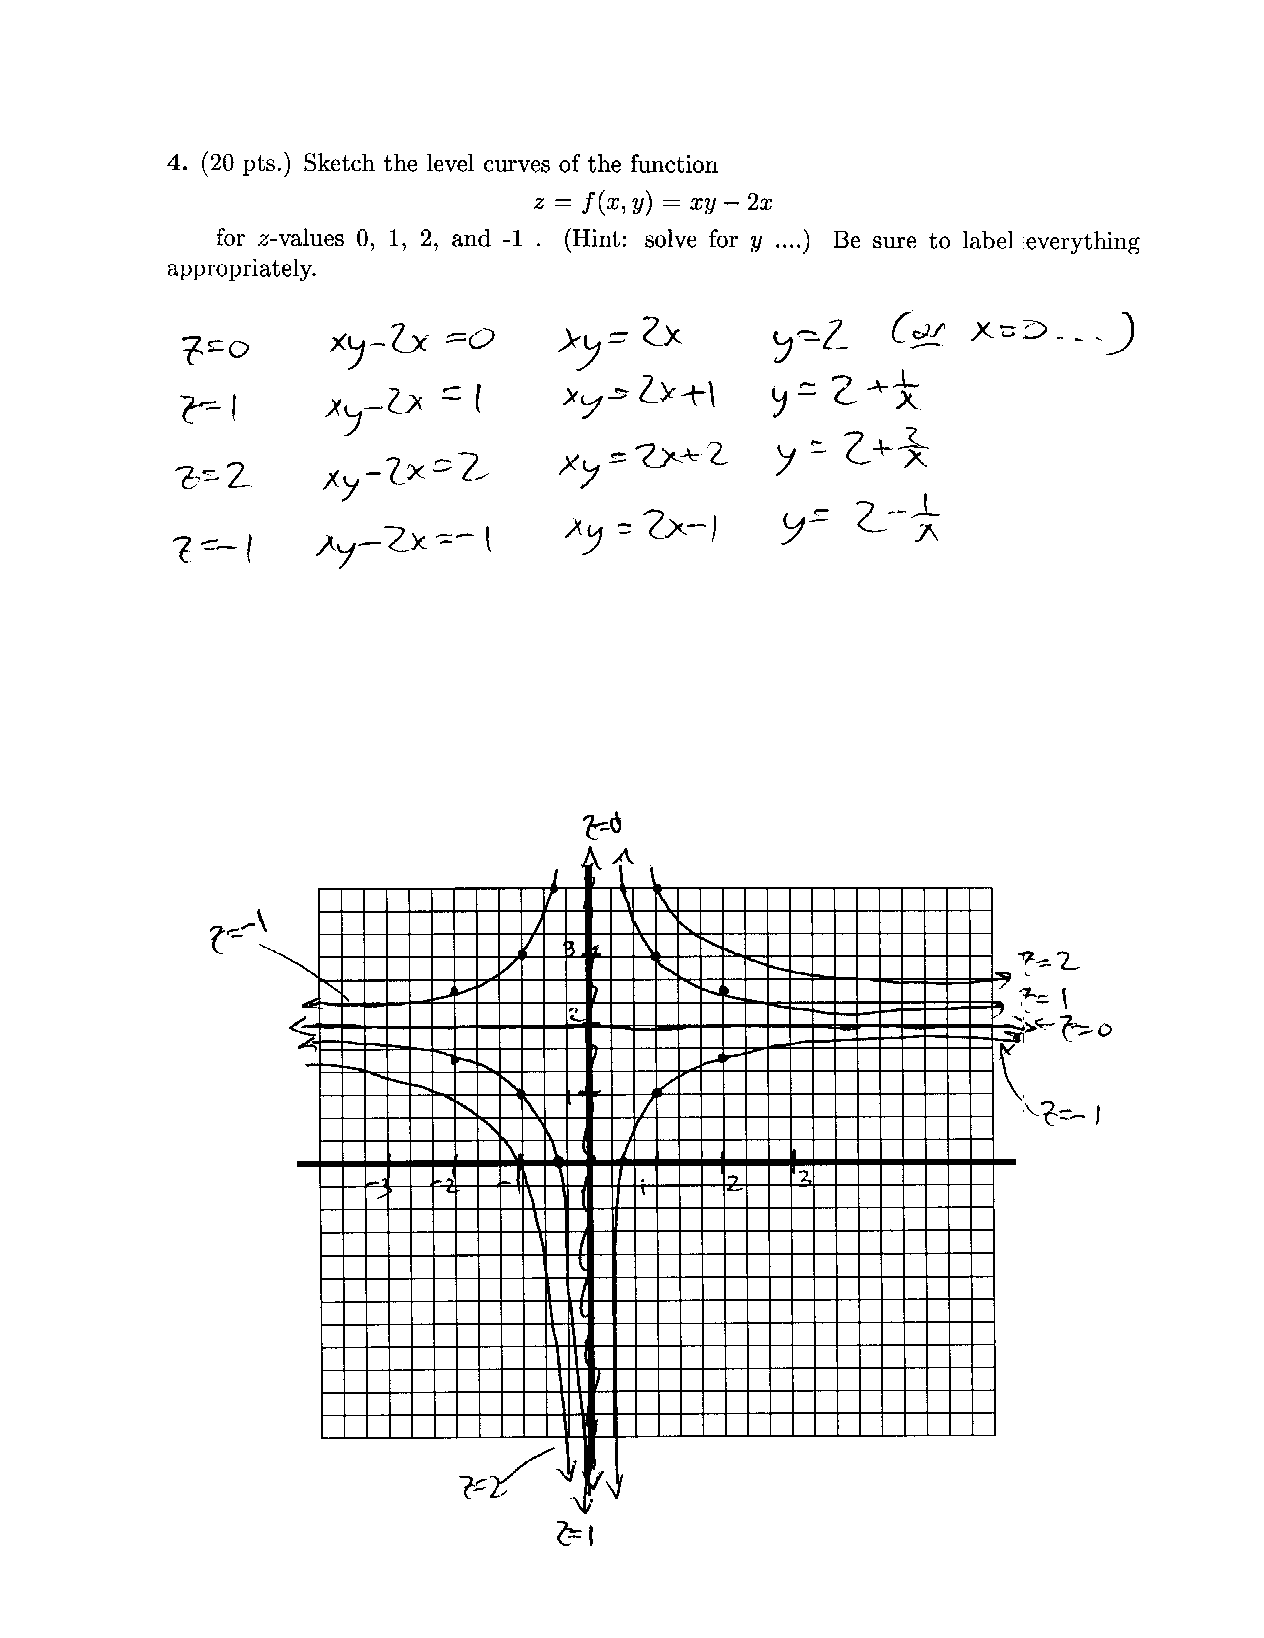 4. (20 pts.) Sketch the level curves of the function
z = f(x, y) = xy − 2x
for z-values 0, 1, 2, and -1 . (Hint: solve for y ....) Be sure to label everything
appropriately.
z=0 xy-2x=0 xy=2x y=2 (or x=0...)
z=1 xy-2x=1 xy=2x+1 y=2+1/x
z=2 xy-2x=2 xy=2x+2 y=2+2/x
z=-1 xy-2x=-1 xy=2x-1 y=2-1/x
z=0
z=-1
3
z=2
z=1
2
z=0
1
z=-1
-3 -2 -1 1 2 3
z=2
z=1